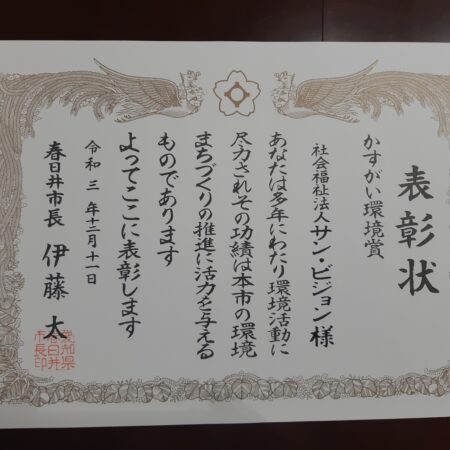 表彰状
かすがい環境賞
社会福祉法人サン・ビジョン様
あなたは多年にわたり環境活動に
尽力されその功績は本市の環境
まちづくりの推進に活力を与える
ものであります
よってここに表彰します
令和三年十二月十一日
春日井市長 伊藤太
愛知県
春日井
市長印